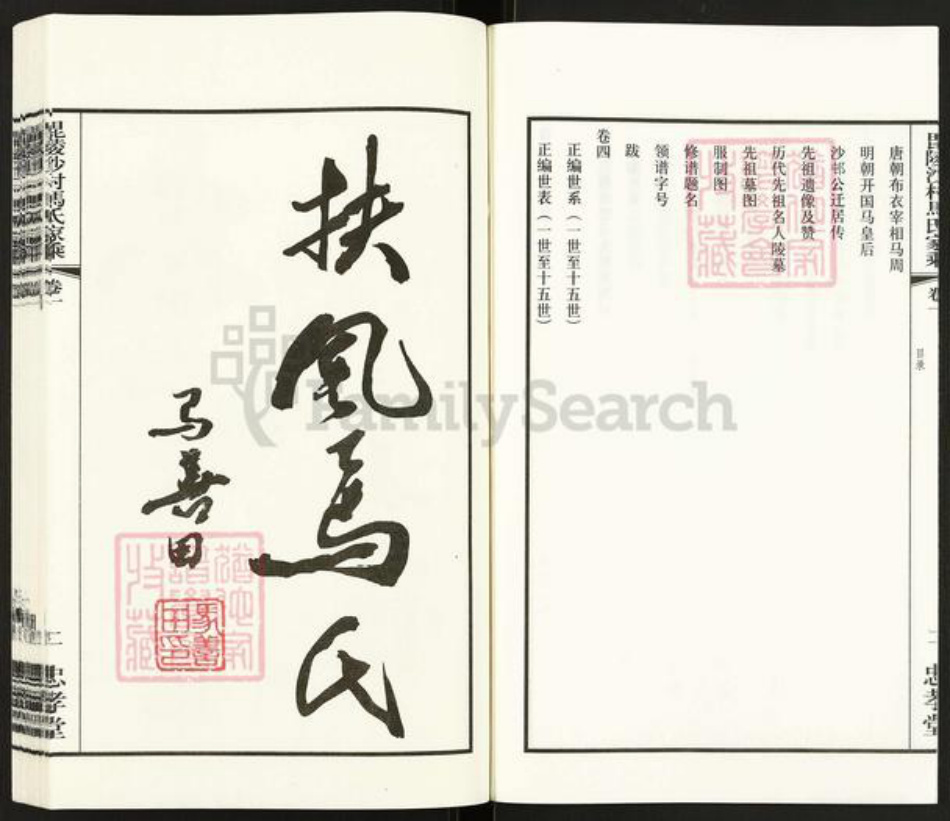 毘陵沙村馬氏家乘
卷一
目录
二
忠孝堂
唐朝布衣宰相马周
明朝开国马皇后
沙邨公迁居传
先祖遗像及赞
历代先祖名人陵墓
先祖墓图
服制图
修谱题名
领谱字号
跋
卷四
正编世系（一世至十五世）
正编世表（一世至十五世）
扶風馬氏
马善田
馬善田印
毘陵沙村馬氏家乘
卷一
二
忠孝堂
FamilySearch